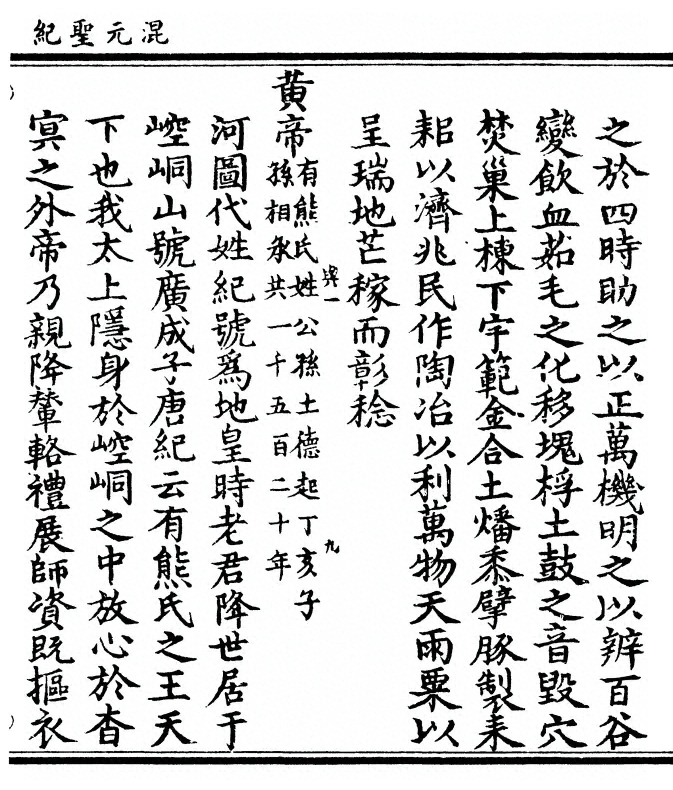 混元聖紀
之於四時助之以正萬機明之以辨百谷
變飲血茹毛之化移塊桴土鼓之音毀穴
焚巢上棟下宇範金合土燔黍擘豚製耒
耜以濟兆民作陶冶以利萬物天雨粟以
呈瑞地芒稼而彰稔
黃帝有熊氏姓公孫土德起丁亥子
孫相承共一千五百二十年
河圖代姓紀號爲地皇時老君降世居于
崆峒山號廣成子唐紀云有熊氏之王天
下也我太上隱身於崆峒之中放心於杳
㝠之外帝乃親降輦輅禮展師資既摳衣
九